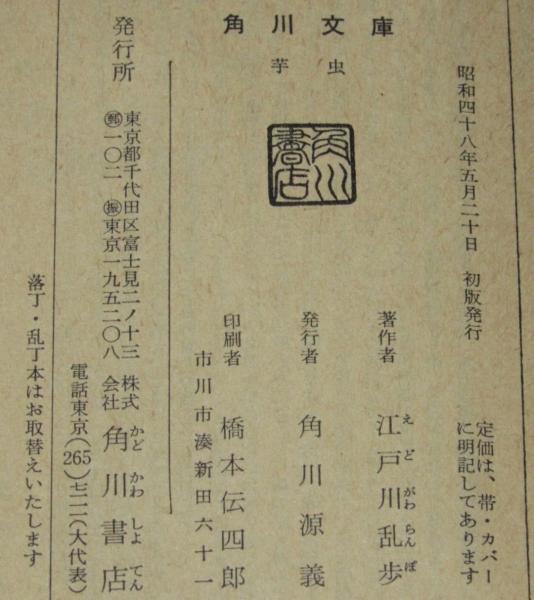 角川文庫
芋虫
角川書店
昭和四十八年五月二十日 初版発行
定価は、帯・カバー
に明記してあります
著作者 江戸川乱歩
えどがわらんぽ
発行者 角川源義
印刷者 橋本伝四郎
市川市湊新田六十一
発行所
東京都千代田区富士見二ノ十三
㊞一〇二 ㊞東京一九五二〇八
株式
会社 角川書店
かどかわしよてん
電話東京(265)七一一一(大代表)
落丁・乱丁本はお取替えいたします